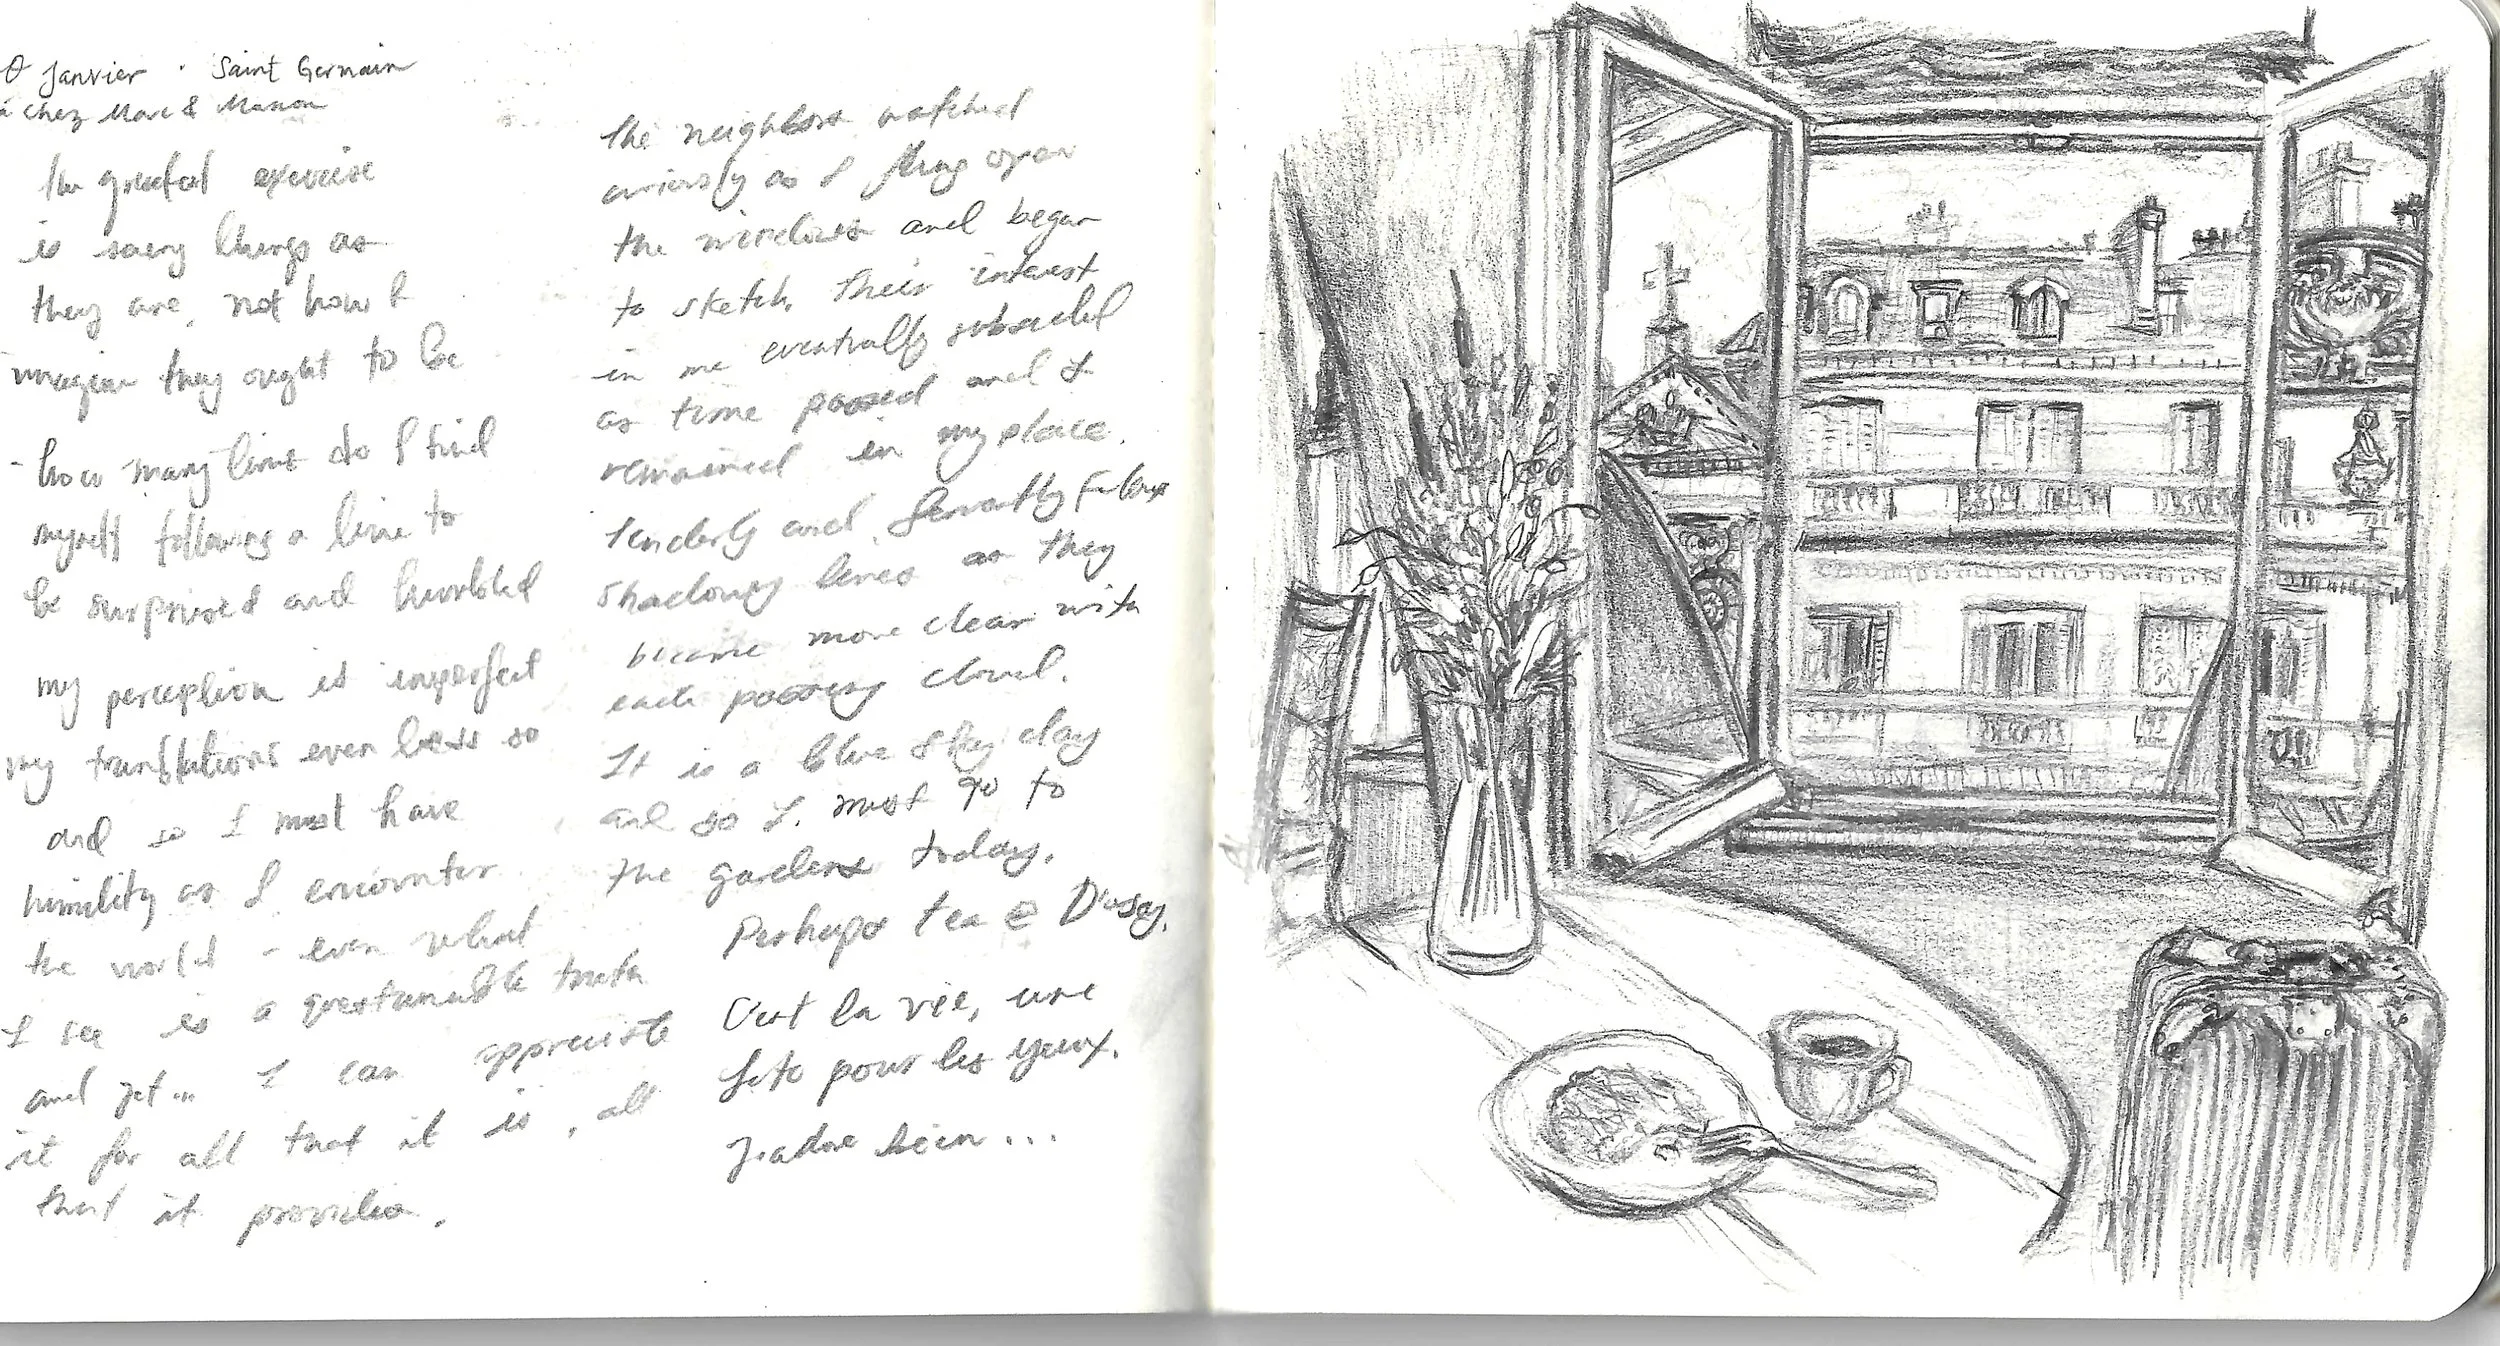 0 Janvier · Saint Germain
à chez Marc & Manon
the greatest exercise
is seeing things as
they are, not how I
imagine they ought to be
- how many times do I find
myself following a line to
be surprised and humbled
my perception is imperfect
my translations even less so
and so I must have
humility as I encounter
the world - even what
I see is a questionable truth
and yet... I can appreciate
it for all that it is, all
that it provides.
the neighbors watched
curiously as I flung open
the windows and began
to sketch. Their interest
in me eventually subsided
as time passed and I
remained in my place.
tenderly and
shadowy lines as they
became more clear with
each passing cloud.
It is a blue sky day
and so I must go to
the gardens today.
Perhaps tea @ D'orsay.
C'est la vie, une
fete pour les yeux.
J'adore bien...